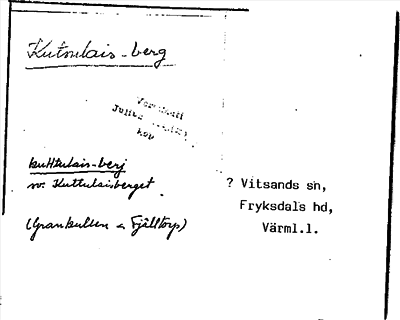 Kutsulais-berg
Julius
kuttulais-berj
sv. Kuttulaisberget
(Grankullen a Fjälltorp)
? Vitsands sn,
Fryksdals hd,
Värml.l.